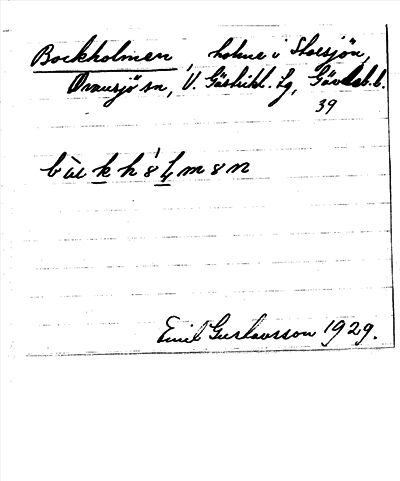 Bockholmen, holme i Storsjön,
Ovansjö sn, V. Gästrikl. tg, Gävleb. l.
39
Emil Gustavsson 1929.